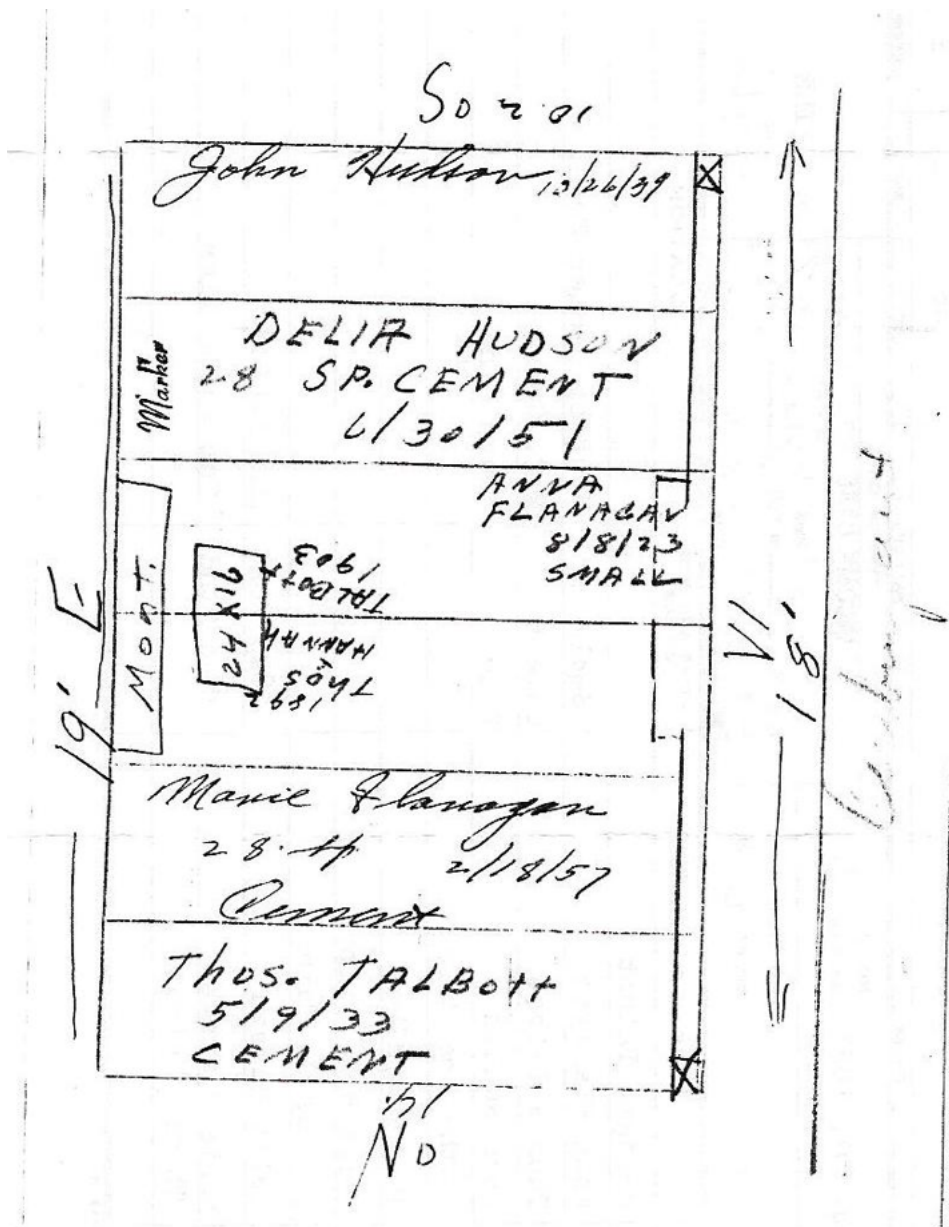 So
John Hudson
Marker
DELIA HUDSON
28 SP. CEMENT
6/30/51
ANNA
FLANAGAN
8/8/23
SMALL
19' E
Mont.
24 X 16
1892
THOS
&
HANNAH
TALBOTT
1903
18'
Marie Flanagan
2/18/57
Cement
Thos. TALBOTT
5/9/33
CEMENT
No